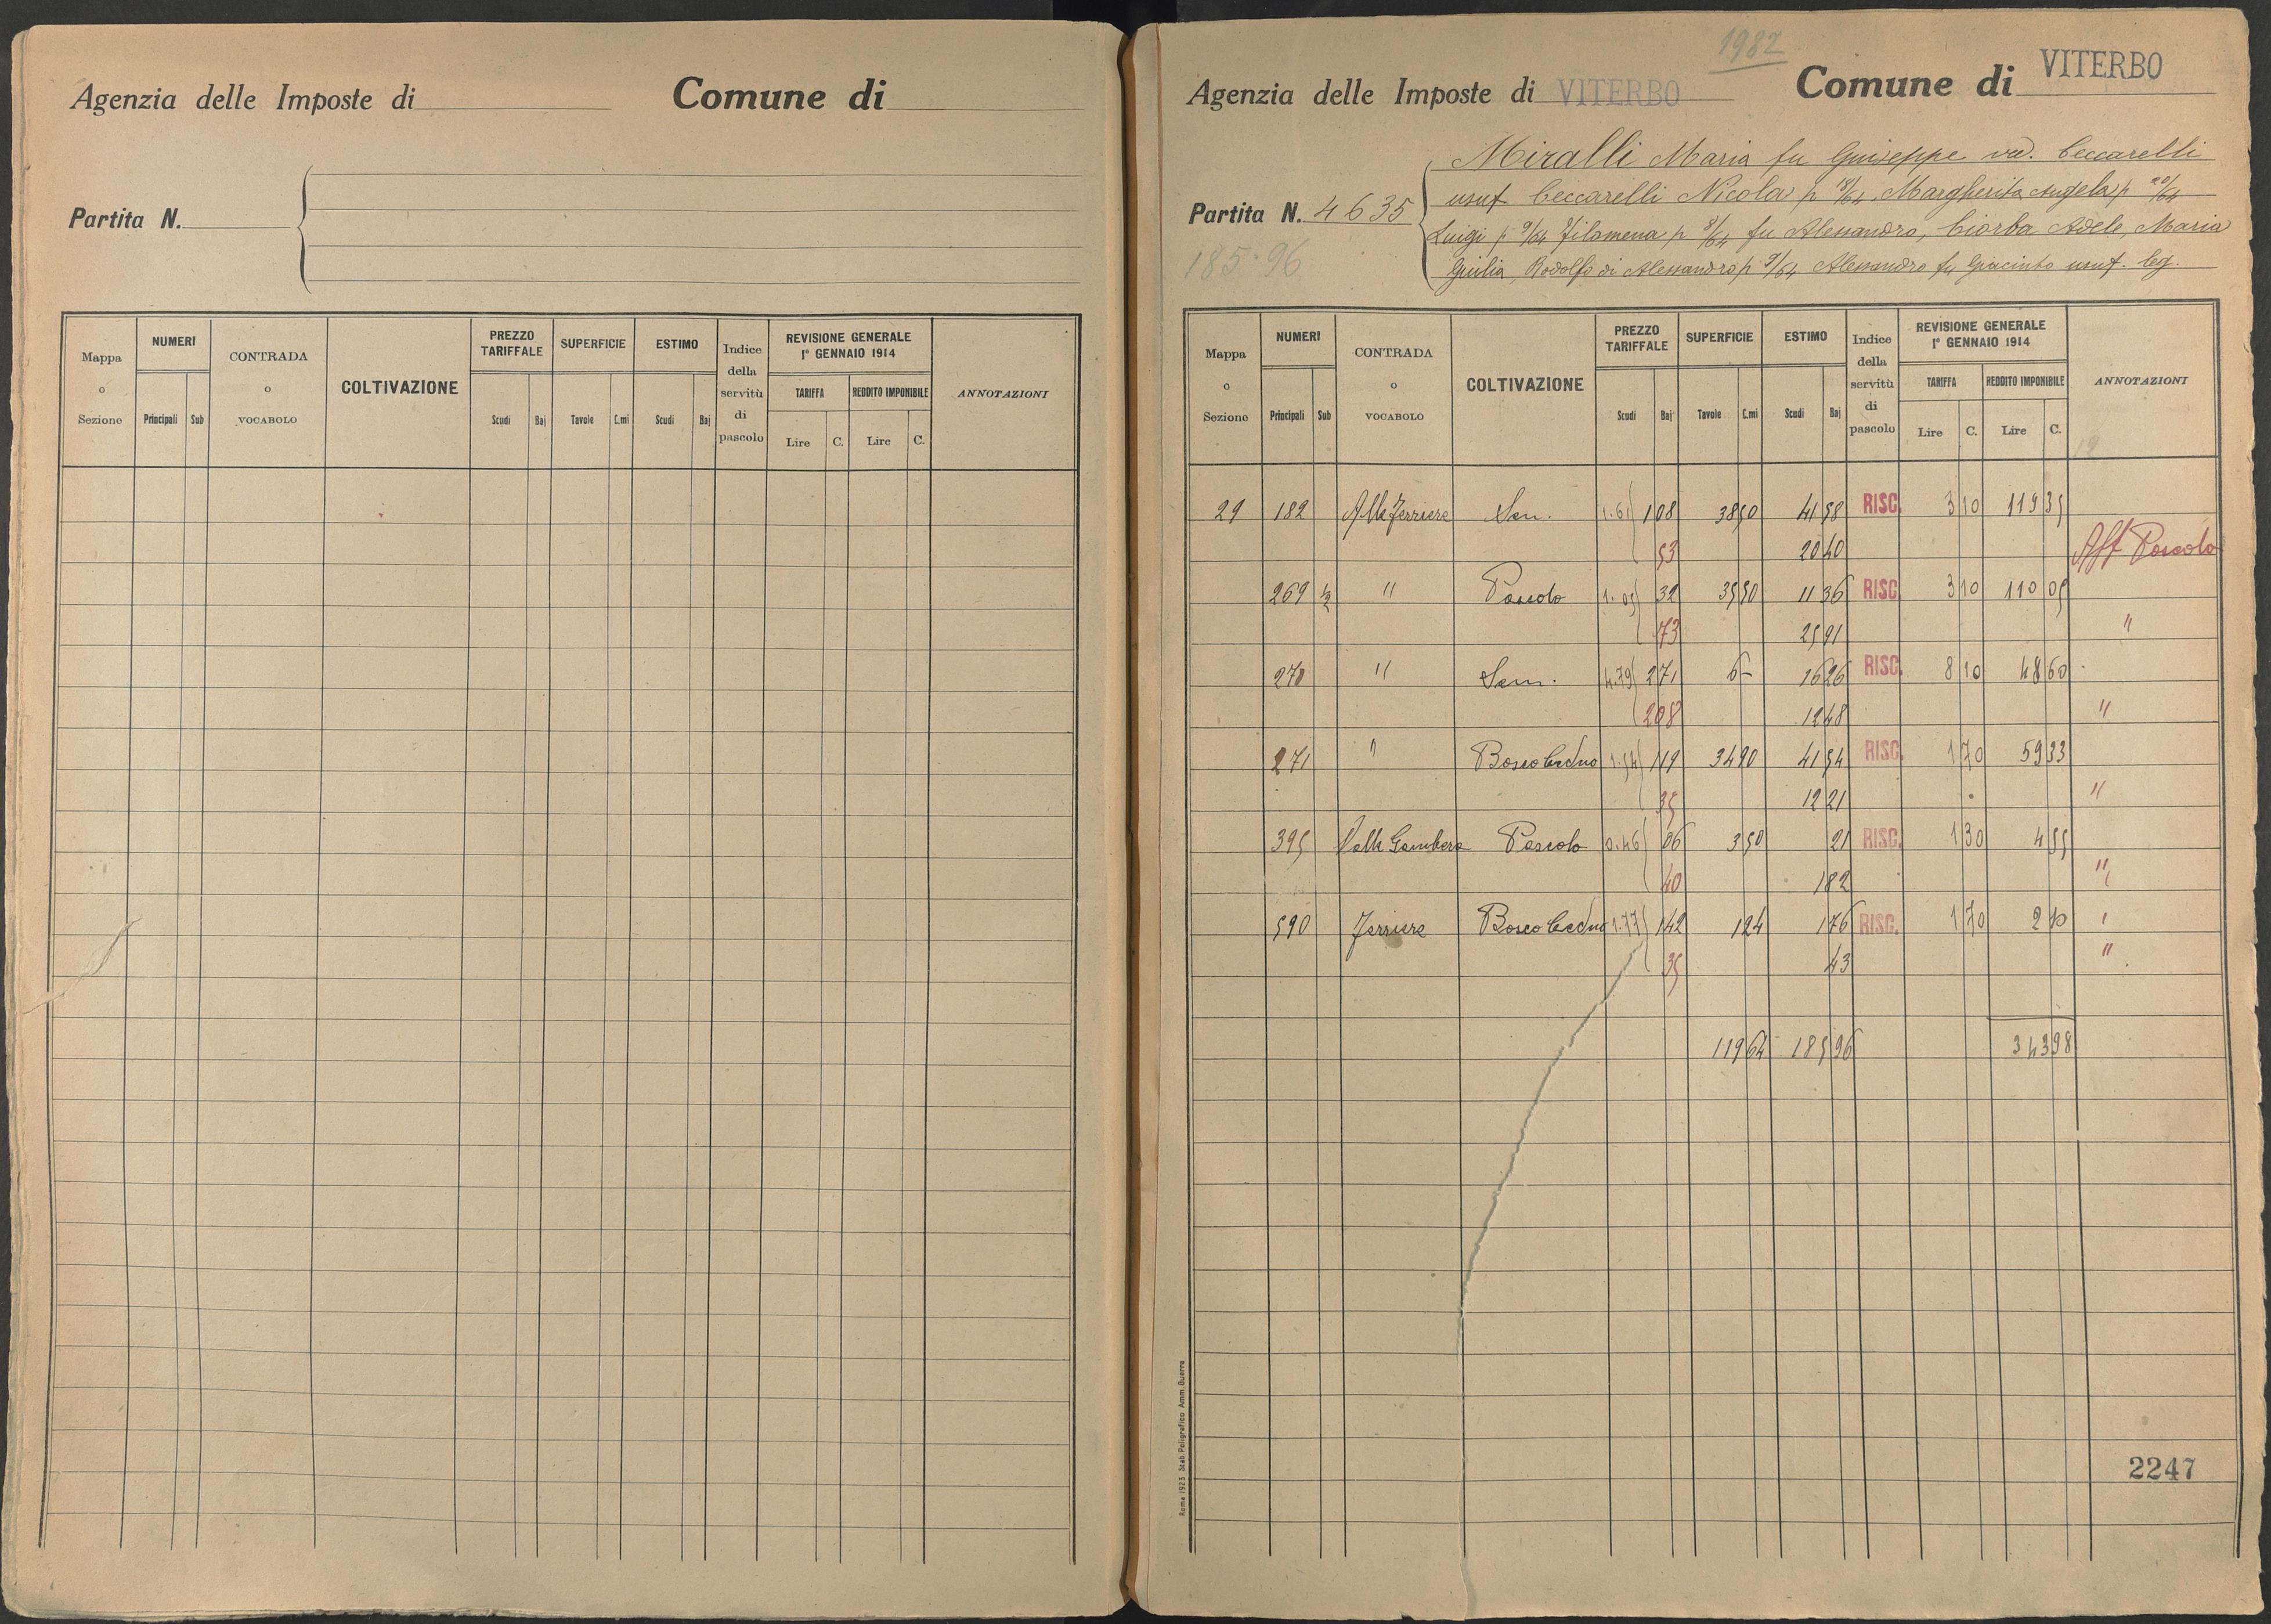 Agenzia delle Imposte di Comune di
Partita N.
Mappa o Sezione NUMERI Principali Sub CONTRADA o VOCABOLO COLTIVAZIONE PREZZO TARIFFALE Scudi Baj SUPERFICIE Tavole C.mi ESTIMO Scudi Baj Indice della servitù di pascolo REVISIONE GENERALE 1° GENNAIO 1914 TARIFFA Lire C. REDDITO IMPONIBILE Lire C. ANNOTAZIONI
1982
Agenzia delle Imposte di VITERBO Comune di VITERBO
Miralli Maria fu Giuseppe ved. Ceccarelli
usuf Ceccarelli Nicola p 18/64, Margherita Angela p 20/64
Partita N. 4635
Luigi p 9/64 Filomena p 8/64 fu Alessandro, Ciorba Adele, Maria
185.96
Giulia, Rodolfo di Alessandro p 9/64 Alessandro fu Giacinto usuf. leg.
Mappa o Sezione NUMERI Principali Sub CONTRADA o VOCABOLO COLTIVAZIONE PREZZO TARIFFALE Scudi Baj SUPERFICIE Tavole C.mi ESTIMO Scudi Baj Indice della servitù di pascolo REVISIONE GENERALE 1° GENNAIO 1914 TARIFFA Lire C. REDDITO IMPONIBILE Lire C. ANNOTAZIONI
19
29 182 Alle Ferriere Sem. 1.61 1 08 38 50 41 58 RISC. 3 10 119 35
53 20 40 Aff Pascolo
269 1/2 " Pascolo 1.05 32 35 50 11 36 RISC. 3 10 110 05
73 25 91 "
270 " Sem. 4.79 2 71 6 - 16 26 RISC. 8 10 48 60
2 08 12 48 "
271 " Bosco Ceduo 1.54 1 19 34 90 41 54 RISC. 1 70 59 33
35 12 21 "
395 Valle Gambera Pascolo 0.46 06 3 50 21 RISC. 1 30 4 55
40 1 82 "
590 Ferriere Bosco Ceduo 1.77 1 42 1 24 1 76 RISC. 1 70 2 10
35 43 "
119 64 185 96 343 98
2247
Roma 1923 Stab. Poligrafico Amm. Guerra